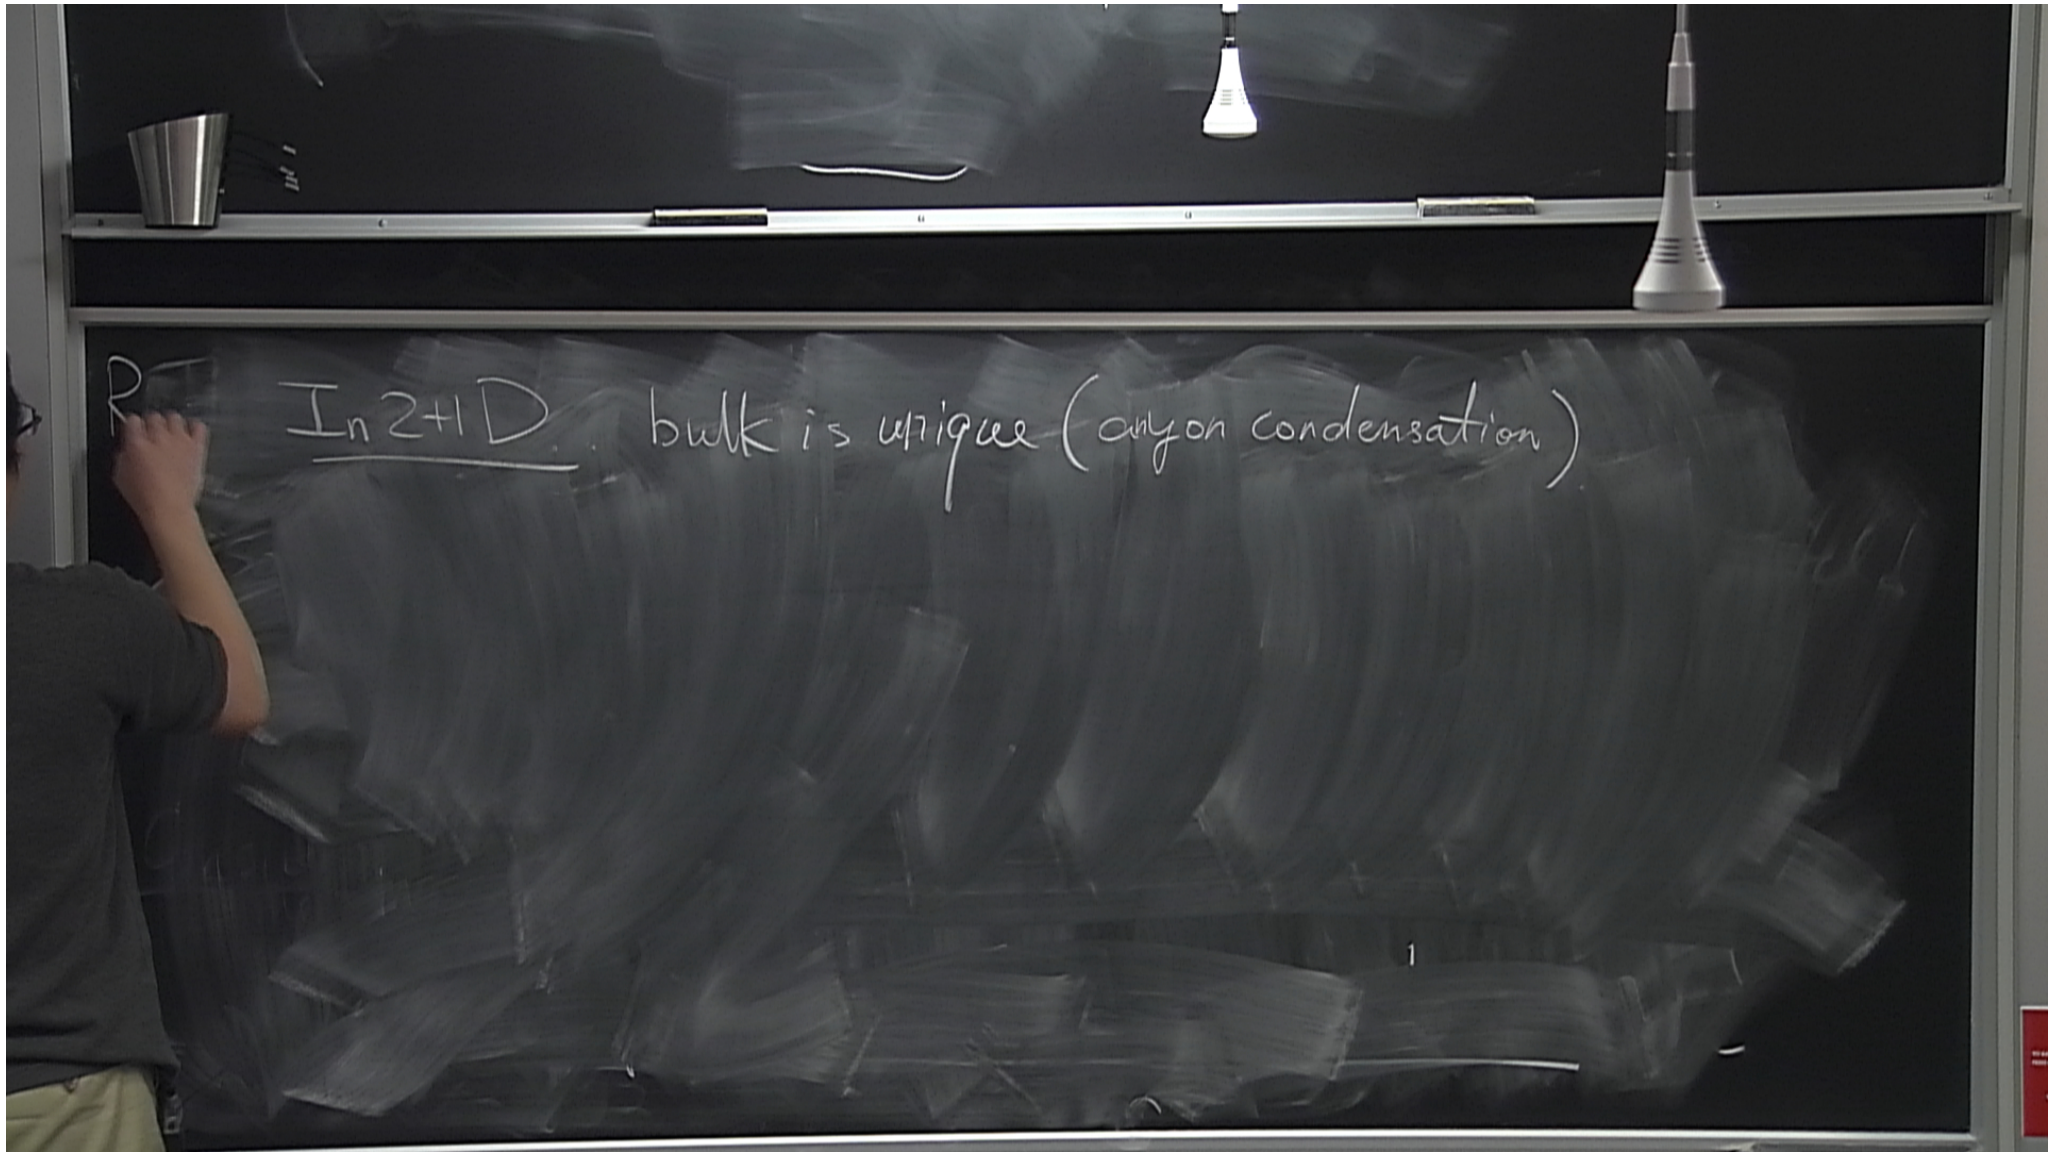 R In 2+1 D bulk is unique (anyon condensation)